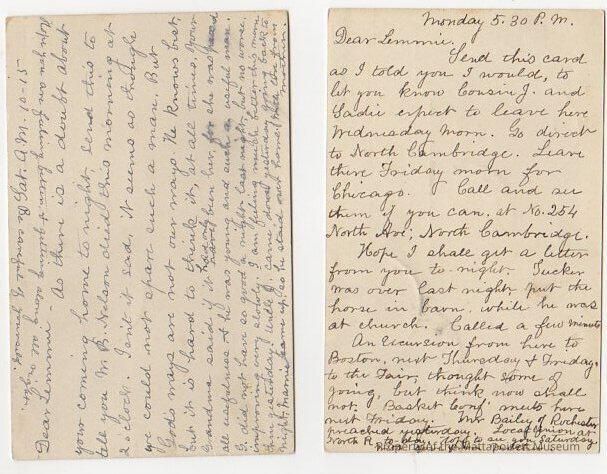 Sat. A.M. 10-15
Dear Lemmie - As there is a doubt about
your coming home to night, send this to
tell you M. B. Nelson died this morning at
2 clock. Isn't it sad, it seems as though
we could not spare such a man. But
God's ways are not our ways He knows best.
but it is hard to think it, at all times. Your
all sadness & he was young and such a useful man.
G. did not have so good a night last night, but no worse.
improving very slowly. I am feeling much better than
mother.
Monday 5.30 P.M.
Dear Lemmie.
Send this card
as I told you I would, to
let you know Cousin J. and
Sadie expect to leave here
Wednesday Morn. Go direct
to North Cambridge. Leave
there Friday morn for
Chicago. Call and see
them if you can, at No. 254
North Ave, North Cambridge.
Hope I shall get a letter
from you to-night. Tucker
was over last night, put the
horse in barn, while he was
at church. Called a few minutes
An Excursion from here to
Boston, next Thursday & Friday,
to the Fair, thought some of
going, but think now shall
not. Basket Conf. meets here
next Friday. Mr Bailey of Rochester
preached yesterday. Local Union at
North R.
to see you Saturday
Property of the Mattapoisett Museum